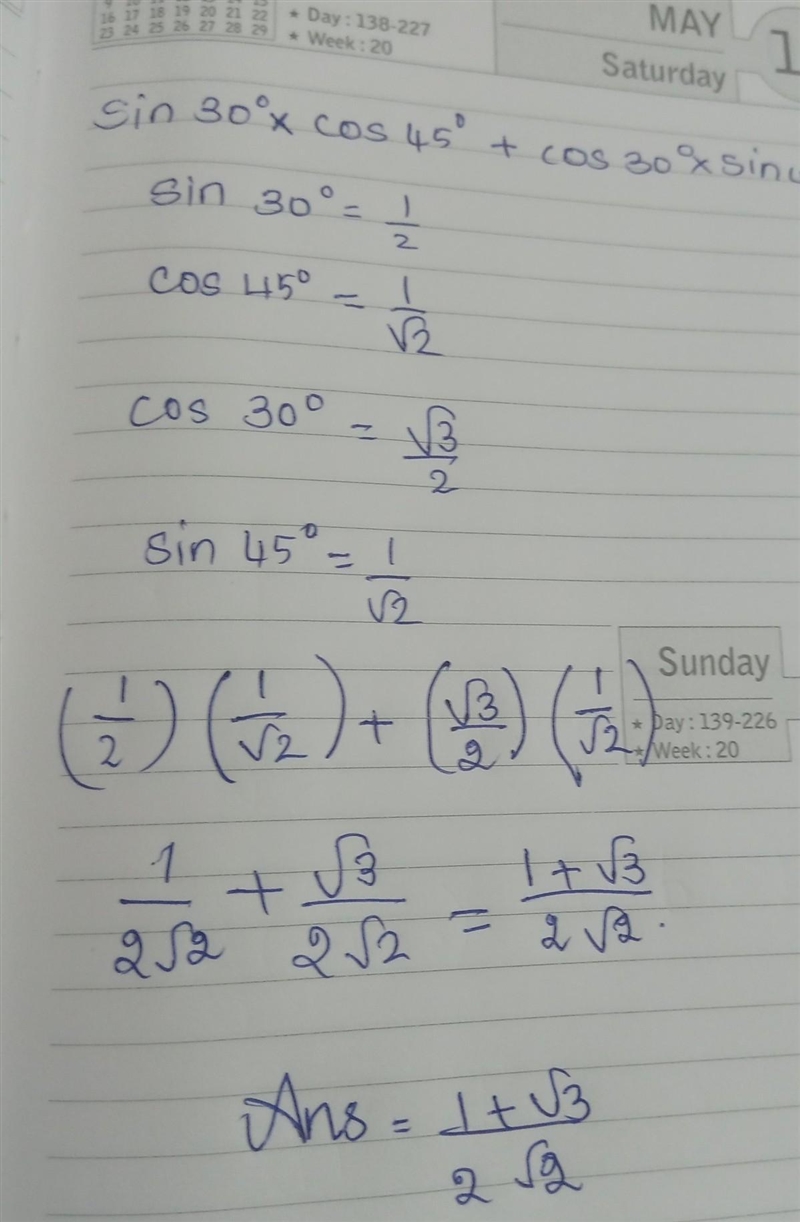 16 17 18 19 20 21 22
23 24 25 26 27 28 29
★ Day : 138-227
★ Week : 20
MAY
Saturday
1
sin 30° × cos 45° + cos 30° × sin
sin 30° = 1/2
cos 45° = 1/√2
cos 30° = √3/2
sin 45° = 1/√2
(1/2) (1/√2) + (√3/2) (1/√2)
Sunday
★ Day : 139-226
★ Week : 20
1/2√2 + √3/2√2 = 1+√3/2√2.
Ans = 1+√3/2√2